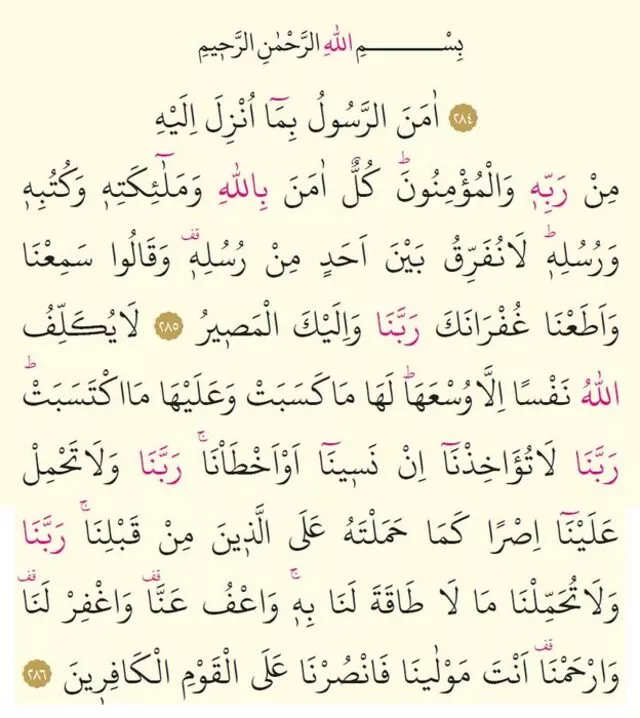 بِسْــــــــــــــمِ اللّٰهِ الرَّحْمٰنِ الرَّحٖيمِ
﴿٢٨٤﴾ اٰمَنَ الرَّسُولُ بِمَٓا اُنْزِلَ اِلَيْهِ
مِنْ رَبِّهٖ وَالْمُؤْمِنُونَؕ كُلٌّ اٰمَنَ بِاللّٰهِ وَمَلٰٓئِكَتِهٖ وَكُتُبِهٖ
وَرُسُلِهٖؕ لَانُفَرِّقُ بَيْنَ اَحَدٍ مِنْ رُسُلِهٖࣞ وَقَالُوا سَمِعْنَا
وَاَطَعْنَا غُفْرَانَكَ رَبَّنَا وَاِلَيْكَ الْمَصٖيرُ ﴿٢٨٥﴾ لَايُكَلِّفُ
اللّٰهُ نَفْسًا اِلَّاوُسْعَهَاؕ لَهَا مَاكَسَبَتْ وَعَلَيْهَا مَااكْتَسَبَتْؕ
رَبَّنَا لَاتُؤَاخِذْنَٓا اِنْ نَسٖينَٓا اَوْاَخْطَأْنَاۚ رَبَّنَا وَلَاتَحْمِلْ
عَلَيْنَٓا اِصْرًا كَمَا حَمَلْتَهُ عَلَى الَّذٖينَ مِنْ قَبْلِنَاۚ رَبَّنَا
وَلَاتُحَمِّلْنَا مَا لَا طَاقَةَ لَنَا بِهٖۚ وَاعْفُ عَنَّاࣞ وَاغْفِرْ لَنَاࣞ
وَارْحَمْنَاࣞ اَنْتَ مَوْلٰينَا فَانْصُرْنَا عَلَى الْقَوْمِ الْكَافِرٖينَ ﴿٢٨٦﴾